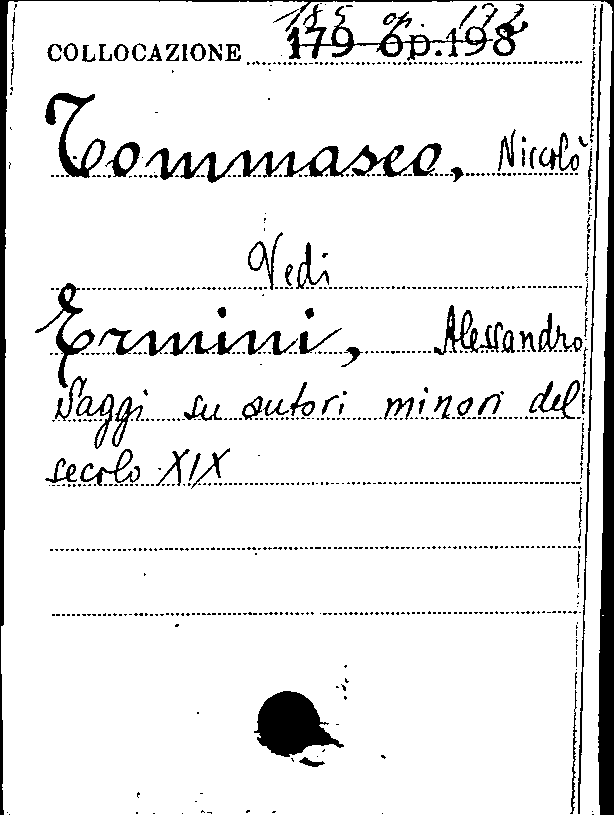 185 op. 172
COLLOCAZIONE 179 op.198
Tommaseo, Niccolò
Vedi
Ermini, Alessandro
Saggi su autori minori del
secolo XIX